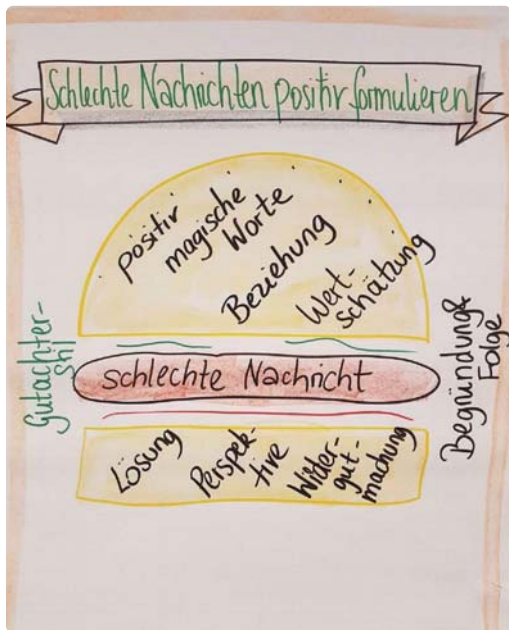 Schlechte Nachrichten positiv formulieren
positiv
magische
Worte
Beziehung
Wert-
schätzung
Gutachter-
stil
schlechte Nachricht
Begründung &
Folge
Lösung
Perspek-
tive
Wider-
gut-
machung